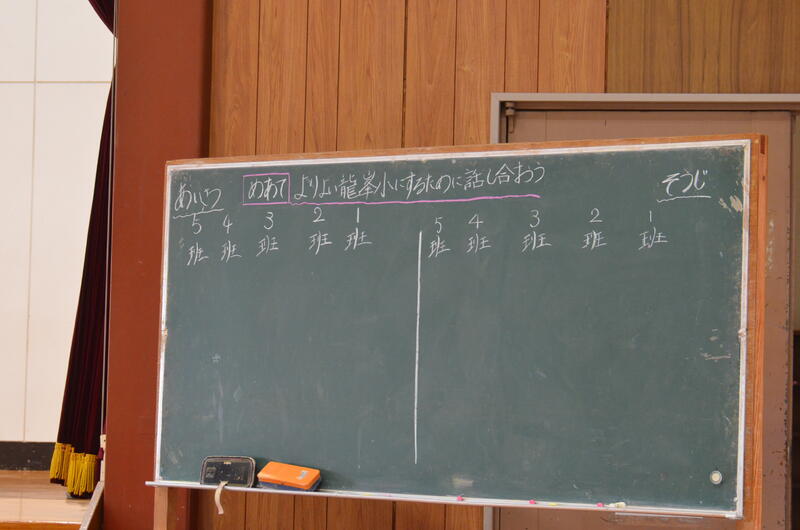 めあて よりよい龍峯小にするために話し合おう
あいさつ
そうじ
5班 4班 3班 2班 1班
5班 4班 3班 2班 1班